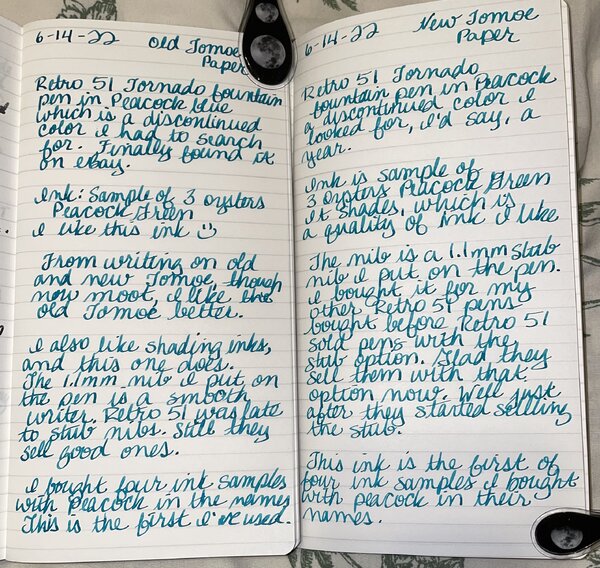 6-14-22 Old Tomoe
Paper
Retro 51 Tornado fountain
pen in Peacock blue
which is a discontinued
color I had to search
for. Finally found it
on ebay.
Ink: Sample of 3 oysters
Peacock Green
I like this ink
From writing on old
and new Tomoe, though
now moot, I like the
old Tomoe better.
I also like shading inks,
and this one does.
The 1.1mm nib I put on
the pen is a smooth
writer. Retro 51 was late
to stub nibs. Still they
sell good ones.
I bought four ink samples
with Peacock in the names
This is the first I've used.
6-14-22 New Tomoe
Paper
Retro 51 Tornado
fountain pen in Peacock
a discontinued color I
looked for, I'd say, a
year.
Ink is sample of
3 oysters Peacock Green
It shades, which is
a quality of ink I like
The nib is a 1.1mm stub
nib I put on the pen.
I bought it for my
other Retro 51 pens
bought before Retro 51
sold pens with the
stub option. Glad they
sell them with that
option now. We'll just
after they started selling
the stub.
This ink is the first of
four ink samples I bought
with peacock in their
names.